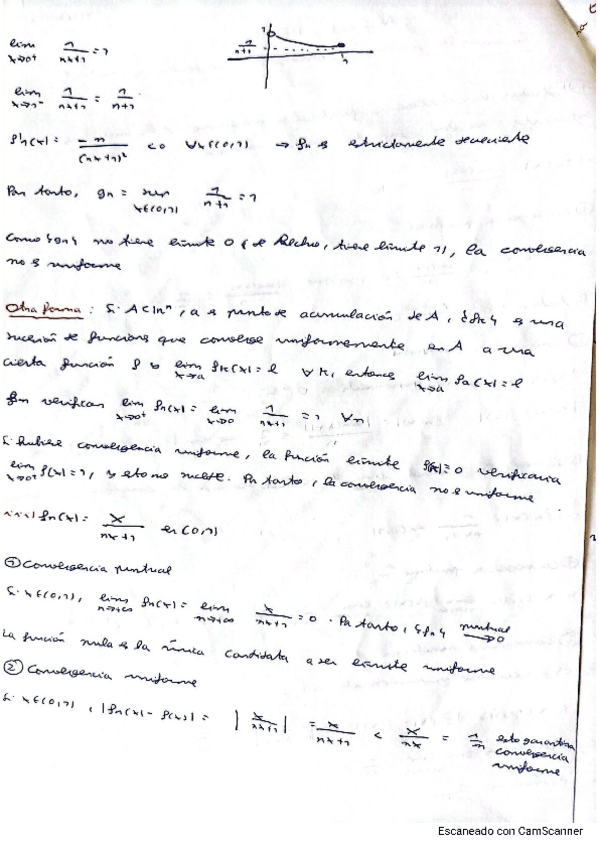 lim x→0⁺ 1/(nx+1) = 1
lim x→1⁻ 1/(nx+1) = 1/(n+1)
f'n(x) = -n/(nx+1)² < 0 ∀x∈(0,1) → fn es estrictamente decreciente
Por tanto, gn = sup x∈(0,1) 1/(nx+1) = 1
Como {gn} no tiene límite 0 (de hecho, tiene límite 1), la convergencia
no es uniforme
Otra forma: Si A⊂ℝⁿ, a es punto de acumulación de A, {fk} es una
sucesión de funciones que converge uniformemente en A a una
cierta función f y lim x→a fk(x) = l ∀k, entonces lim x→a f(x) = l
fn verifican lim x→0⁺ fn(x) = lim x→0 1/(nx+1) = 1 ∀n
Si hubiere convergencia uniforme, la función límite f(x)=0 verificaria
lim x→0⁺ f(x) = 1, y esto no sucede. Por tanto, la convergencia no es uniforme
iii) fn(x) = x/(nx+1) en (0,1)
① Convergencia puntual
Si x∈(0,1), lim n→+∞ fn(x) = lim n→+∞ x/(nx+1) = 0. Por tanto, {fn} puntual→ 0
La función nula es la única candidata a ser límite uniforme
② Convergencia uniforme
Si x∈(0,1), |fn(x) - f(x)| = |x/(nx+1)| = x/(nx+1) < x/(nx) = 1/n esto garantiza
convergencia
uniforme
Escaneado con CamScanner